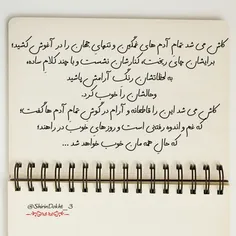 کاش می شد تمام آدم های غمگین و تنهای جهان را در آغوش کشید؛
برایشان چای ریخت، کنارشان نشست و با چند کلام ساده،
به لحظاتشان رنگ آرامش پاشید
و حالشان را خوب کرد.
کاش می شد این را عاقلانه و آرام در گوش تمام آدم ها گفت؛
که غم و اندوه رفتنی است و روزهای خوب در راهند؛
که حال همه مان خوب خواهد شد ...
@ShirinDokht_3